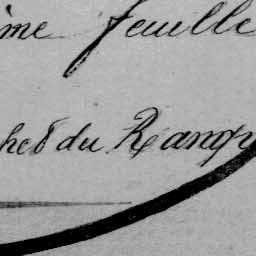 ème feuille
ches du Rang